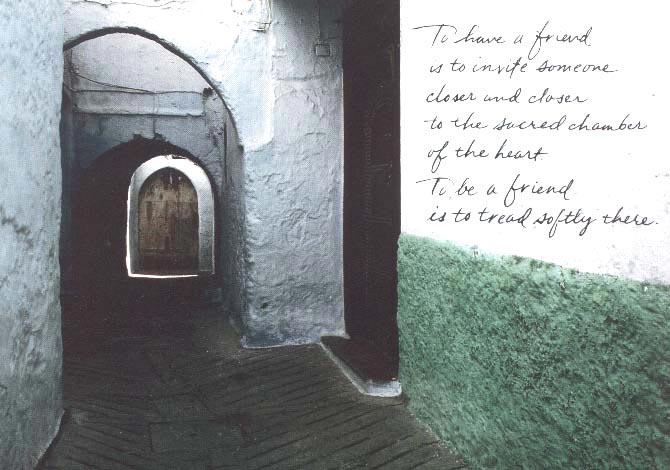 To have a friend
is to invite someone
closer and closer
to the sacred chamber
of the heart
To be a friend
is to tread softly there.